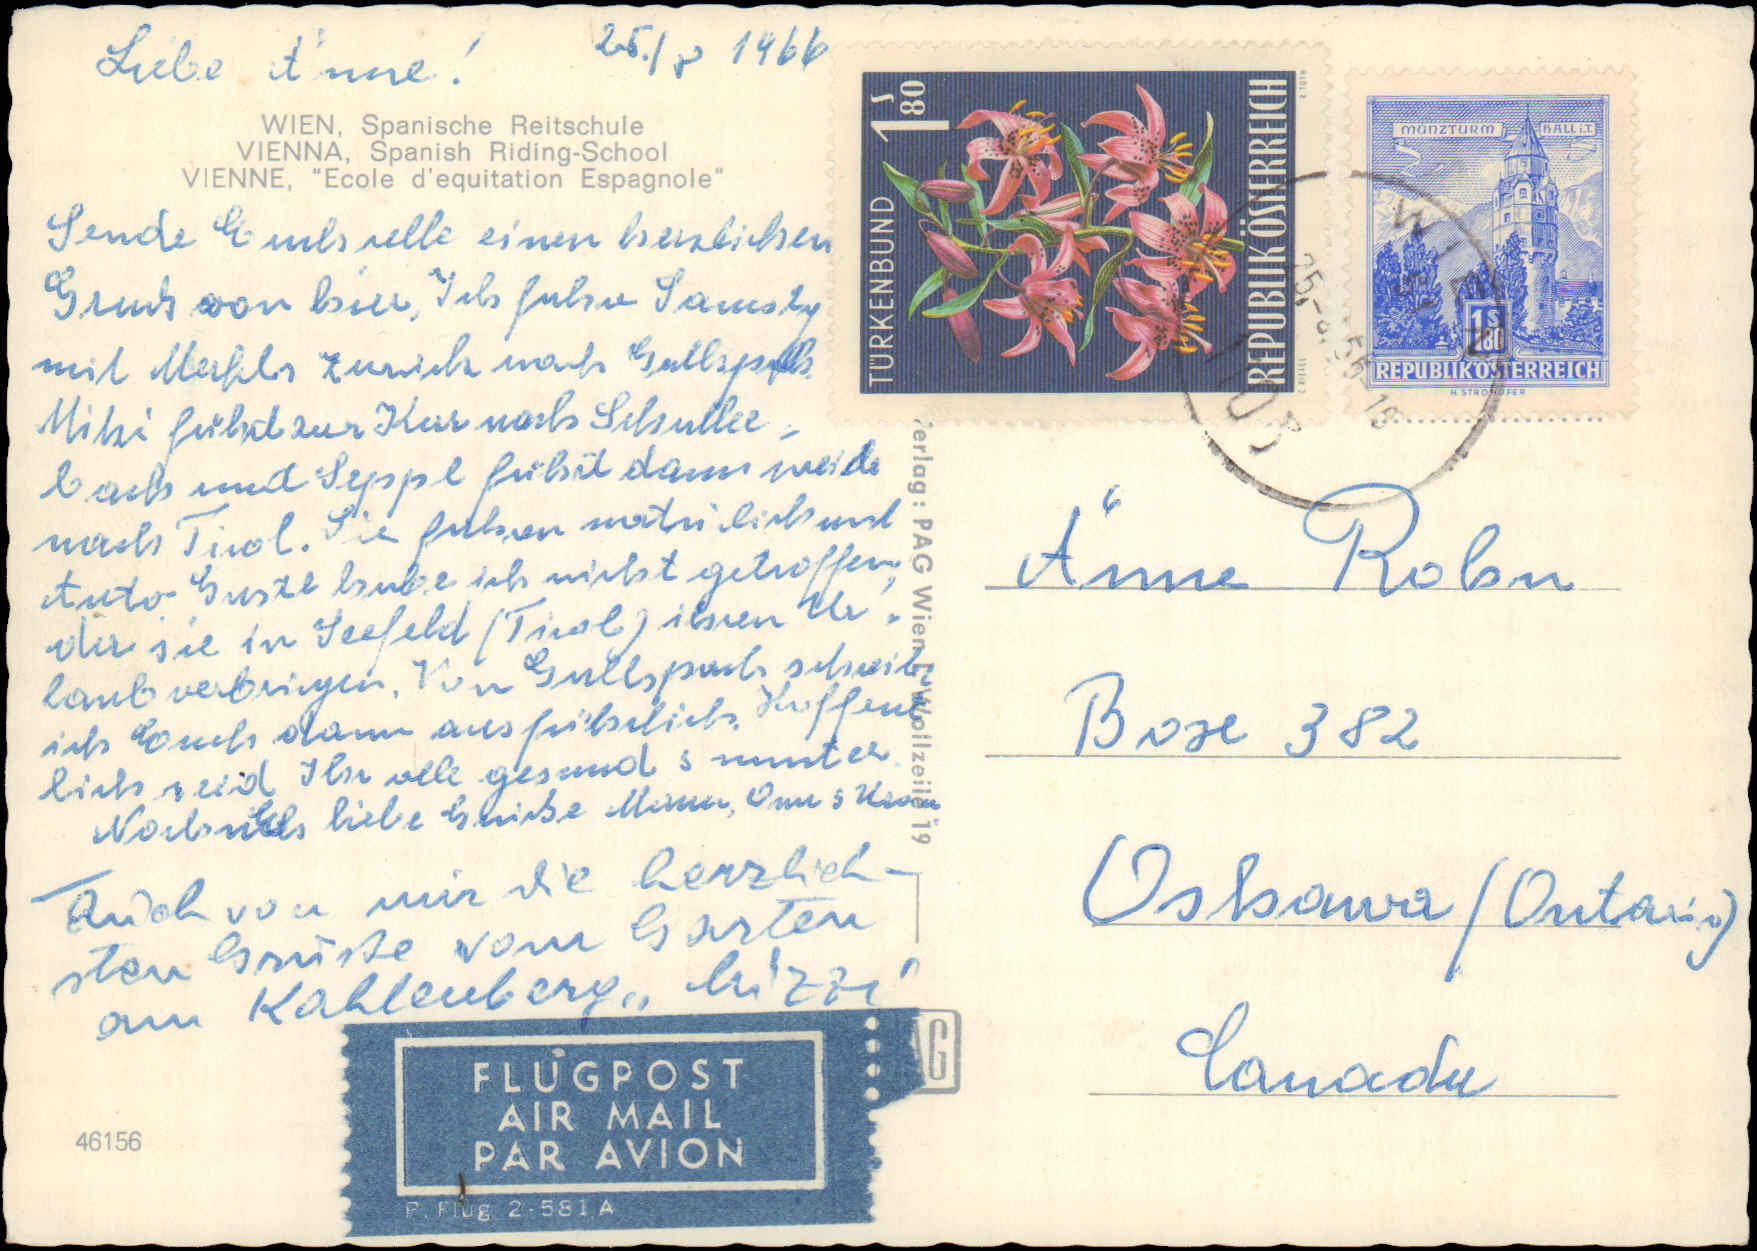 Liebe Änne! 25./8 1966
WIEN, Spanische Reitschule
VIENNA, Spanish Riding-School
VIENNE, "Ecole d'equitation Espagnole"
Sende Euch alle einen herzlichen
Gruß von hier, Ich fahre Samstg
mit zurück nach Gallspach
Mitzi fährt zur Kur nach Schaller-
bach und Seppl fährt dann weide
nach Tirol. Sie fahren natürlich mit
Auto Gustl habe ich nicht getroffen,
da sie in Seefeld (Tirol) ihren Ur-
laub verbringen. Von Gallspach schreib
ich Euch dann ausführlich. Hoffent
lich seid Ihr alle gesund & munter.
Nochmals liebe Grüße Mama, Oma &
Auch von mir die herzlich-
sten Grüsse vom Garten
am Kahlenberg,, Mizzi
FLUGPOST
AIR MAIL
PAR AVION
P. Flug 2-581 A
46156
AG
Verlag: PAG Wien I, Wollzeile 19
1 S 80
TÜRKENBUND
REPUBLIK ÖSTERREICH
MÜNZTURM HALL i.T.
1 S 80
REPUBLIK ÖSTERREICH
H. STROHOFER
WIEN
1103
Änne Rohn
Boxe 382
Oshawa (Ontario)
Canada